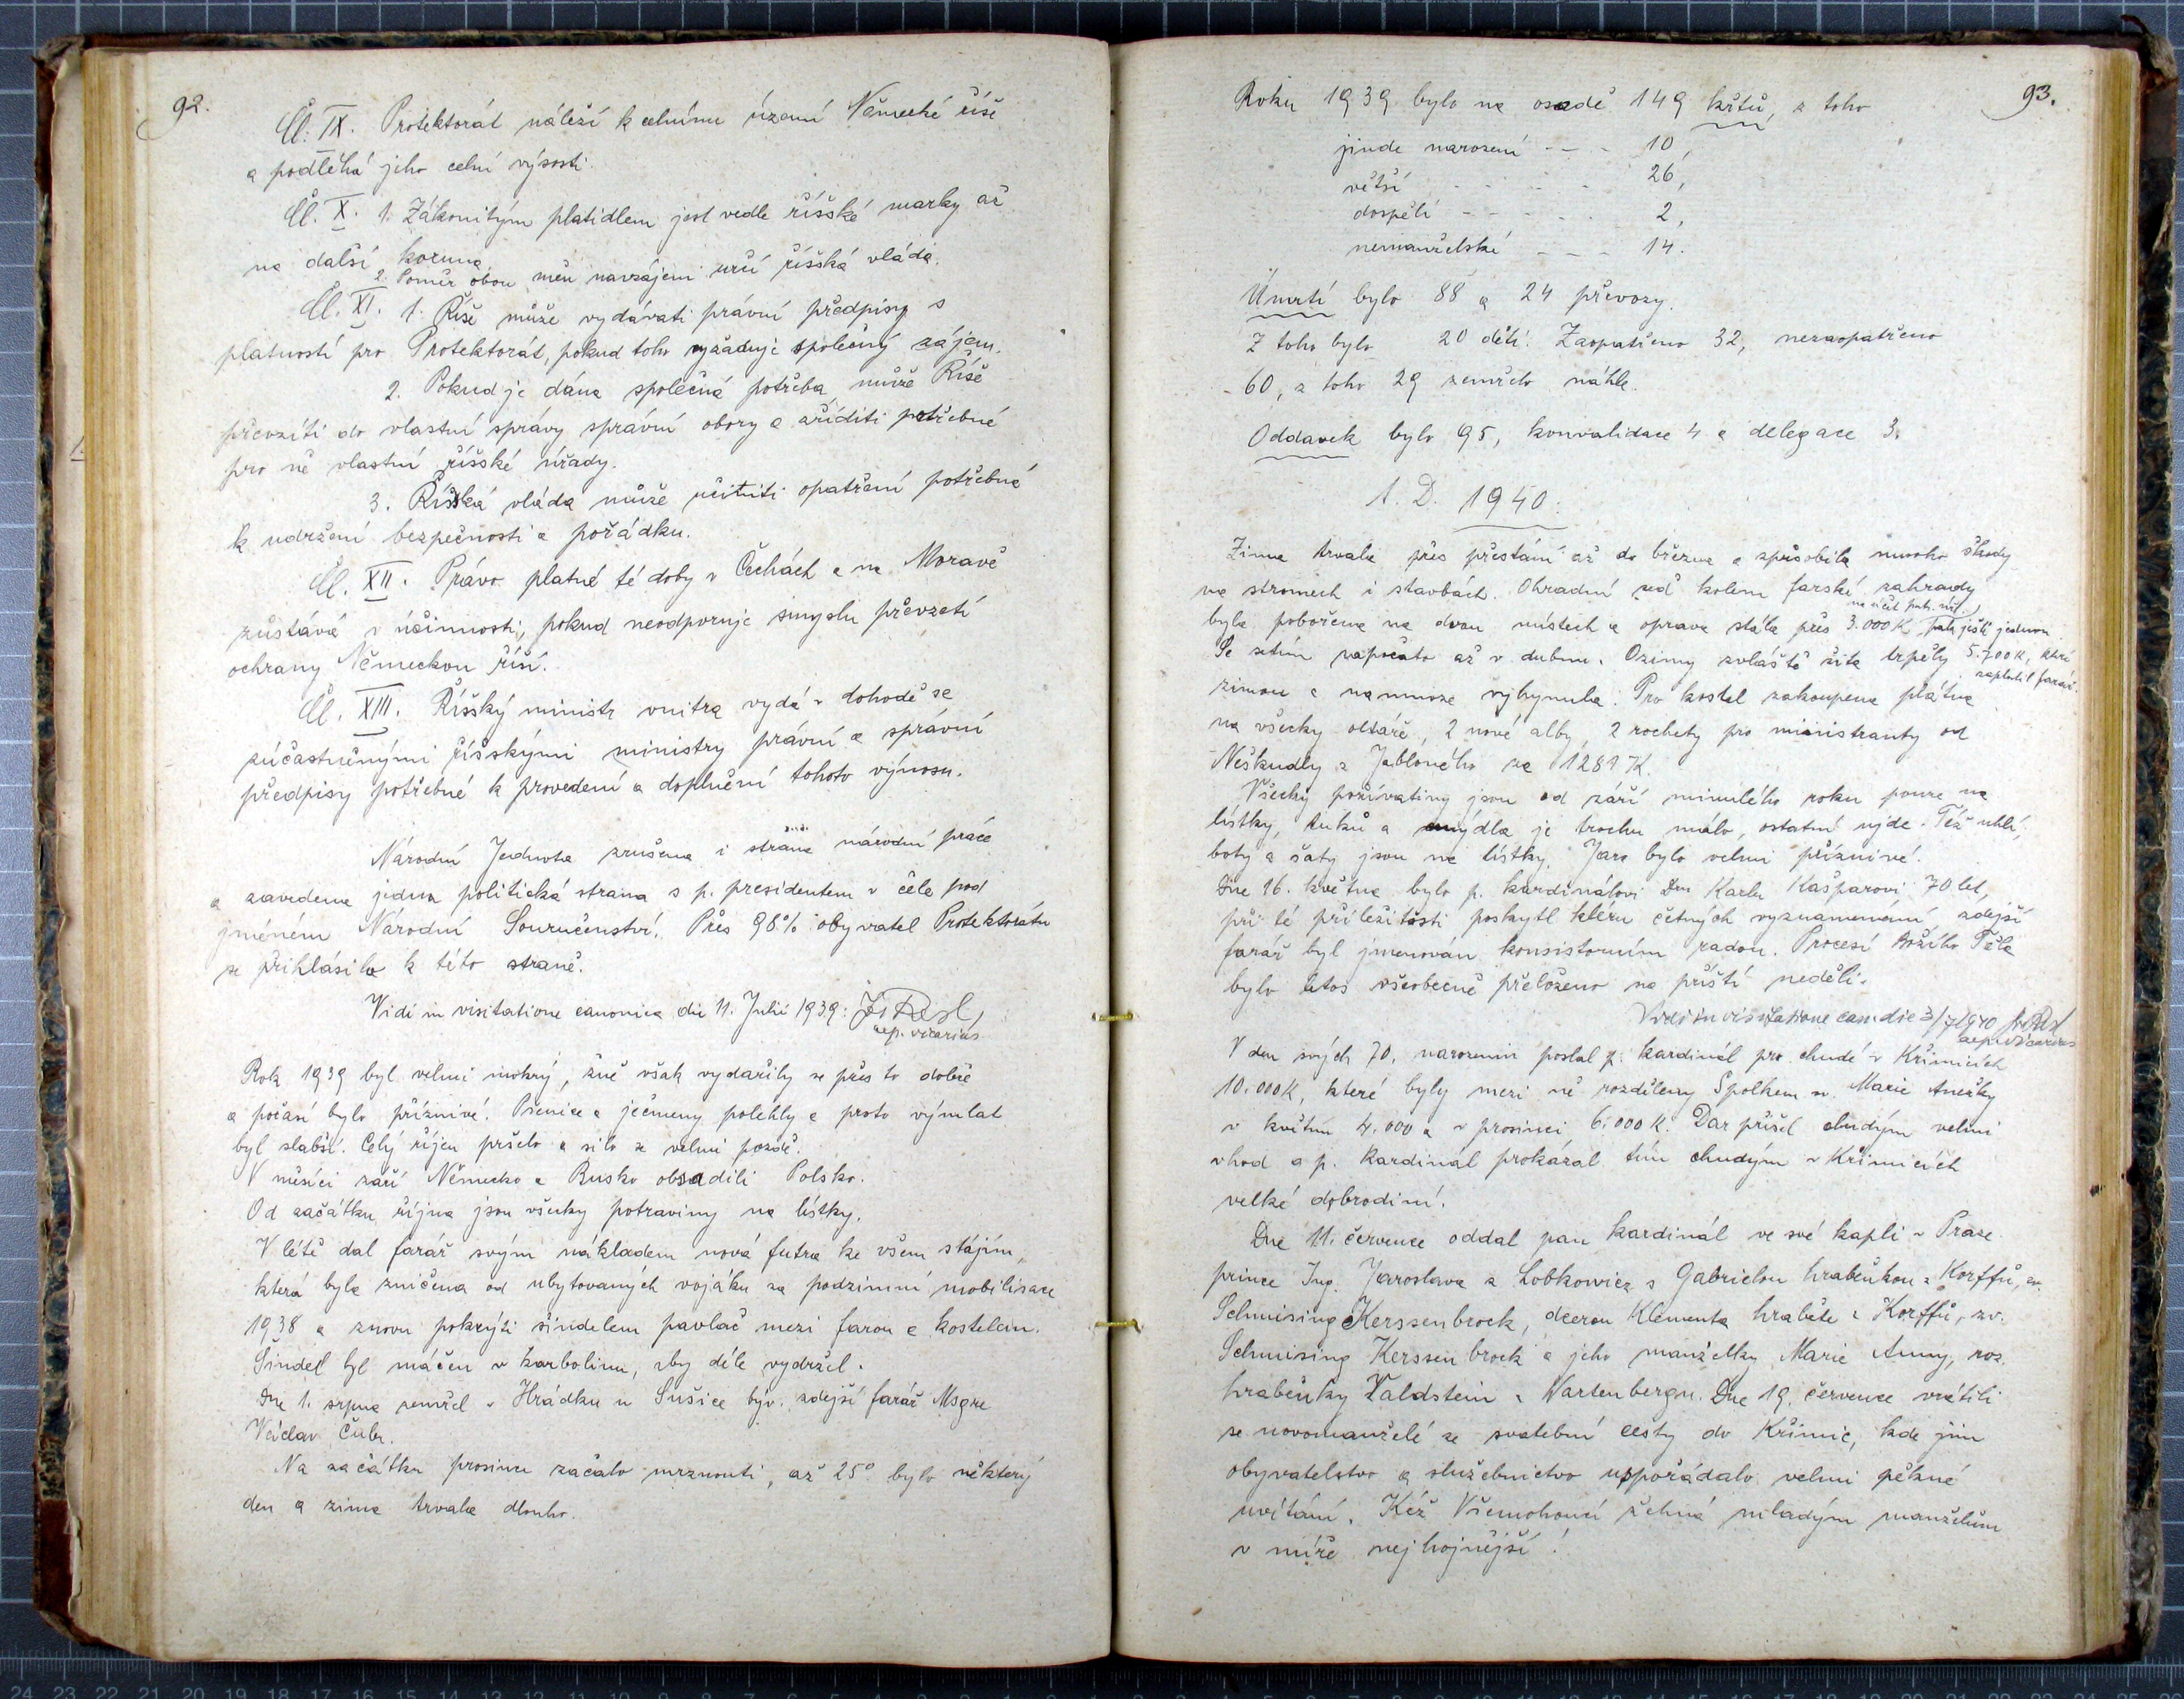 92.
Čl. IX. Protektorát náleží k celnímu území Německé říše
a podléhá jeho celní výsosti.
Čl. X. 1. Zákonitým platidlem jest vedle říšské marky až
na další koruna.
2. Poměr obou měn navzájem určí říšská vláda.
Čl. XI. 1. Říše může vydávati právní předpisy s
platností pro Protektorát, pokud toho vyžaduje společný zájem.
2. Pokud je dána společná potřeba, může Říše
převzíti do vlastní správy správní obory a zříditi potřebné
pro ně vlastní říšské úřady.
3. Říšská vláda může učiniti opatření potřebná
k udržení bezpečnosti a pořádku.
Čl. XII. Právo platné té doby v Čechách a na Moravě
zůstává v účinnosti, pokud neodporuje smyslu převzetí
ochrany Německou říší.
Čl. XIII. Říšský ministr vnitra vydá v dohodě se
zúčastněnými říšskými ministry právní a správní
předpisy potřebné k provedení a doplnění tohoto výnosu.
Národní Jednota zrušena i strana národní práce
a zavedena jedna politická strana s p. presidentem v čele pod
jménem Národní Souručenství. Přes 98% obyvatel Protektorátu
se přihlásilo k této straně.
Vidi in visitatione canonica die 11. Julii 1939:
aep. vicarius
Rok 1939 byl velmi mokrý, žně však vydařily se přes to dobře
a počasí bylo příznivé. Pšenice a ječmeny polehly a proto výmlat
byl slabší. Celý říjen pršelo a silo se velmi pozdě.
V měsíci září Německo a Rusko obsadili Polsko.
Od začátku října jsou všecky potraviny na lístky.
V létě dal farář svým nákladem nová futra ke všem stájím,
která byla zničena od ubytovaných vojáků za podzimní mobilisace
1938 a znovu pokrýti šindelem pavlač mezi farou a kostelem.
Šindel byl máčen v karbolinu, aby déle vydržel.
Dne 1. srpna zemřel v Hrádku u Sušice býv. zdejší farář Msgre
Václav Čubr.
Na začátku prosince začalo mrznouti, až 25° bylo některý
den a zima trvala dlouho.
93.
Roku 1939 bylo na osadě 149 křtů, z toho
jinde narození - - - 10,
větší - - - - - 26,
dospělí - - - - - 2,
nemanželské - - - 14.
Úmrtí bylo 88 a 24 převozy.
Z toho bylo 20 dětí. Zaopatřeno 32, nezaopatřeno
60, z toho 29 zemřelo náhle.
Oddavek bylo 95, konvalidace 4 a delegace 3.
A. D. 1940:
Zima trvala přes přestání až do března a způsobila mnoho škody
na stromech i stavbách. Ohradní zeď kolem farské zahrady
byla pobořena na dvou místech a oprava stála přes 3.000 K, pak ještě jednou
5.700 K, které
zaplatil farář.
Se setím započato až v dubnu. Ozimy zvláště žita trpěly
zimou a namnoze vyhynula. Pro kostel zakoupena plátna
na všecky oltáře, 2 nové alby, 2 rochety pro ministranty od
Neškudly z Jabloného za 1289 K.
Všecky poživatiny jsou od září minulého roku pouze na
lístky, tuků a mýdla je trochu málo, ostatní ujde. Též uhlí,
boty a šaty jsou na lístky. Jaro bylo velmi příznivé.
Dne 16. května bylo p. kardinálovi Dru Karlu Kašparovi 70 let,
při té příležitosti poskytl kléru četných vyznamenání, zdejší
farář byl jmenován konsistorním radou. Procesí Božího Těla
bylo letos všeobecně přeloženo na příští neděli.
Vidi in visitatione can. die 3/7 1940
aep. vicarius
V den svých 70. narozenin poslal p. kardinál pro chudé v Křimicích
10.000 K, které byly mezi ně rozděleny Spolkem sv. Marie Anežky
v květnu 4.000 a v prosinci 6.000 K. Dar přišel chudým velmi
vhod a p. kardinál prokázal tím chudým v Křimicích
velké dobrodiní.
Dne 11. července oddal pan kardinál ve své kapli v Praze
prince Ing. Jaroslava z Lobkowicz s Gabrielou hraběnkou z Korffů, zv.
Schmising Kerssenbrock, dcerou Klementa hraběte z Korffů, zv.
Schmising Kerssenbrock a jeho manželky Marie Anny, roz.
hraběnky Valdstein z Wartenbergu. Dne 19. července vrátili
se novomanželé ze svatební cesty do Křimic, kde jim
obyvatelstvo a služebnictvo uspořádalo velmi pěkné
uvítání. Kéž Všemohoucí žehná mladým manželům
v míře nejhojnější!